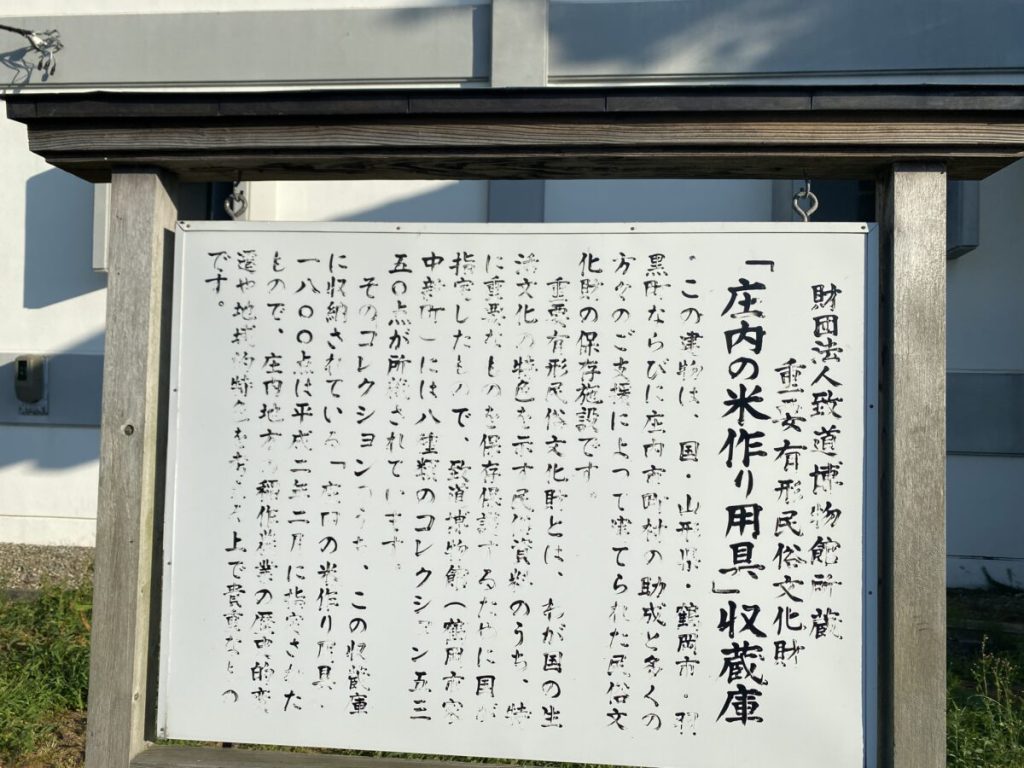 財団法人致道博物館所蔵
重要有形民俗文化財
「庄内の米作り用具」収蔵庫
・この建物は、国・山形県・鶴岡市・羽
黒町ならびに庄内市町村の助成と多くの
方々のご支援によって建てられた民俗文
化財の保存施設です。
重要有形民俗文化財とは、わが国の生
活文化の特色を示す民俗資料のうち、特
に重要なものを保存保護するために国が
指定したもので、致道博物館(鶴岡市家
中新町)には八種類のコレクション五三
五〇点が所蔵されています。
そのコレクションのうち、この収蔵庫
に収納されている「庄内の米作り用具」
一八〇〇点は平成二年二月に指定された
もので、庄内地方の稲作農業の歴史的変
遷や地域的特色を考える上で貴重なもの
です。